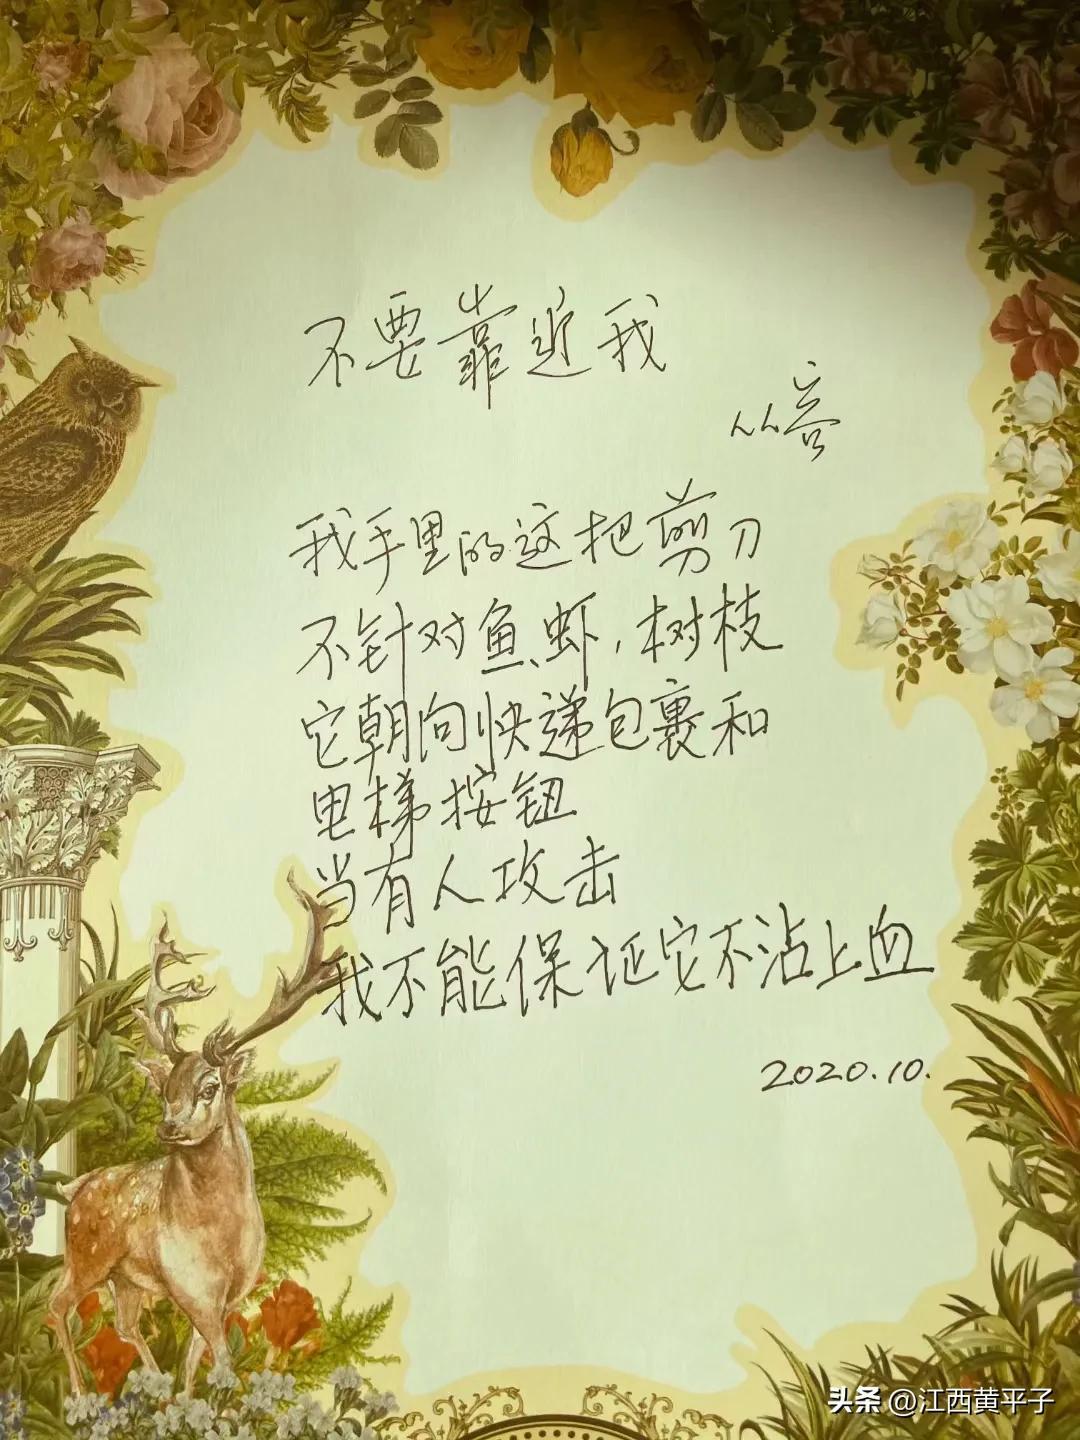 不要靠近我
从容
我手里的这把剪刀
不针对鱼、虾，树枝
它朝向快递包裹和
电梯按钮
当有人攻击
我不能保证它不沾上血
2020.10.
头条@江西黄平子